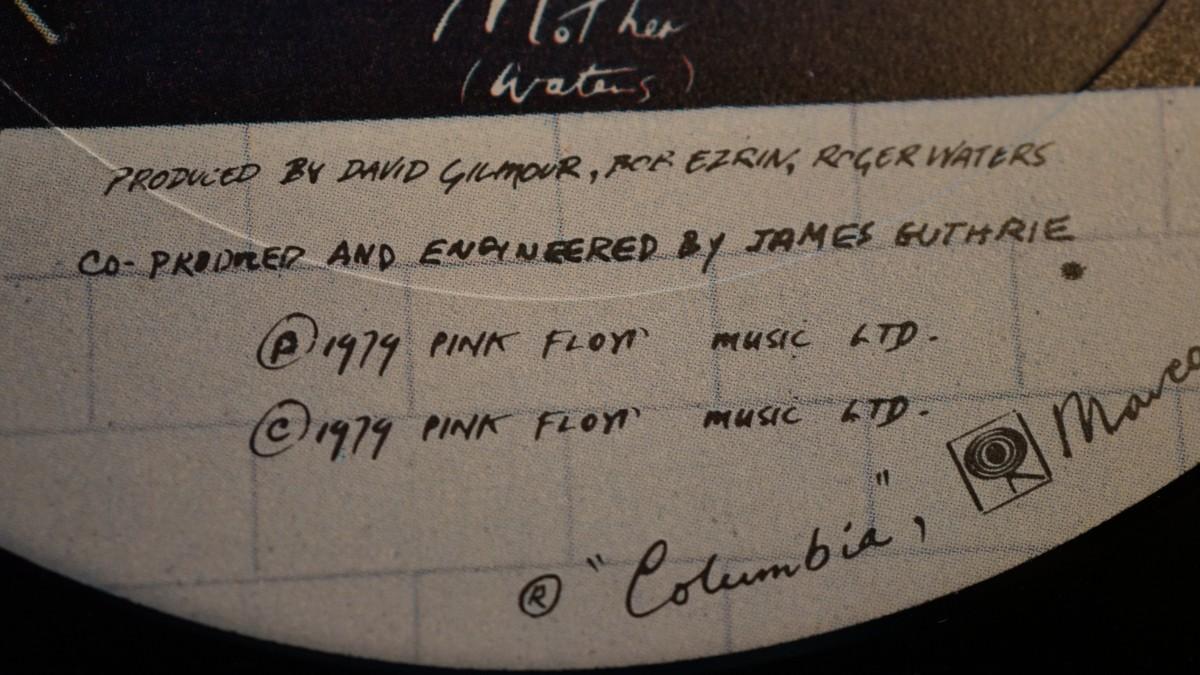 Mother
(Waters)
PRODUCED BY DAVID GILMOUR, BOB EZRIN, ROGER WATERS
CO-PRODUCED AND ENGINEERED BY JAMES GUTHRIE
Ⓟ 1979 PINK FLOYD MUSIC LTD.
© 1979 PINK FLOYD MUSIC LTD.
® "Columbia",